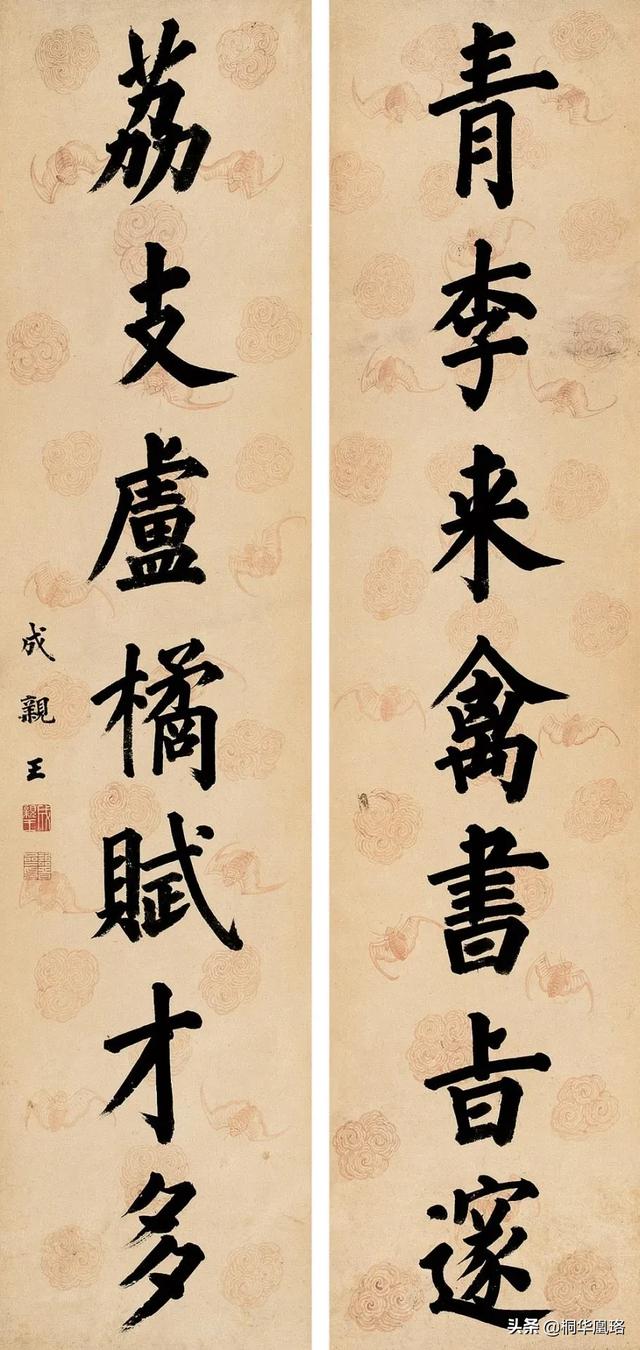 青李来禽書旨邃
荔支盧橘賦才多
成親王
头条 @桐华凰珞